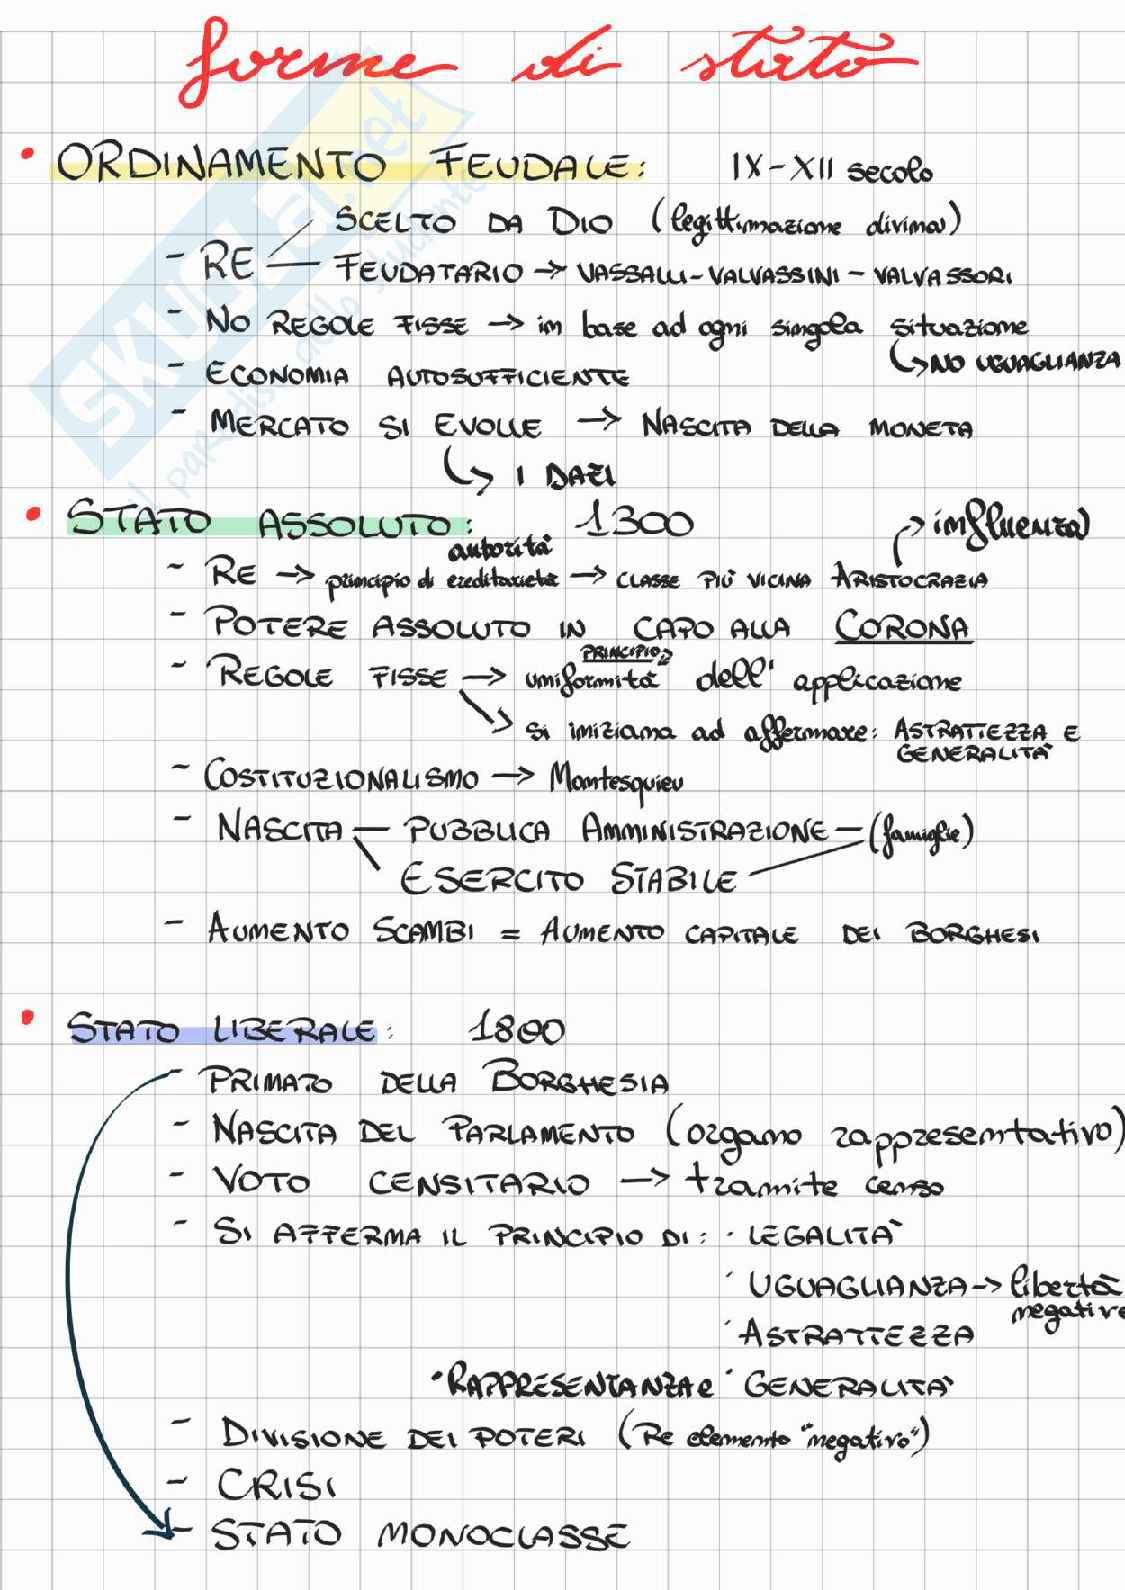 forme di stato
• ORDINAMENTO FEUDALE: IX-XII secolo
SCELTO DA DIO (legittimazione divina)
- RE — FEUDATARIO → VASSALLI-VALVASSINI-VALVASSORI
- NO REGOLE FISSE → in base ad ogni singola situazione
↳ NO UGUAGLIANZA
- ECONOMIA AUTOSUFFICIENTE
- MERCATO SI EVOLVE → NASCITA DELLA MONETA
↳ I DAZI
• STATO ASSOLUTO: 1300 → influenza
autorità
- RE → principio di ereditarietà → CLASSE PIÙ VICINA ARISTOCRAZIA
- POTERE ASSOLUTO IN CAPO ALLA CORONA
PRINCIPIO
- REGOLE FISSE → uniformità dell' applicazione
↘ si iniziana ad affermare: ASTRATTEZZA E
GENERALITÀ
- COSTITUZIONALISMO → Montesquieu
- NASCITA — PUBBLICA AMMINISTRAZIONE — (famiglie)
ESERCITO STABILE
- AUMENTO SCAMBI = AUMENTO CAPITALE DEI BORGHESI
• STATO LIBERALE: 1800
- PRIMATO DELLA BORGHESIA
- NASCITA DEL PARLAMENTO (organo rappresentativo)
- VOTO CENSITARIO → tramite censo
- SI AFFERMA IL PRINCIPIO DI: · LEGALITÀ
· UGUAGLIANZA → libertà
negative
· ASTRATTEZZA
· RAPPRESENTANZA e · GENERALITÀ
- DIVISIONE DEI POTERI (Re elemento "negativo")
- CRISI
- STATO MONOCLASSE
SKUOLA.net
il paradiso dello studente